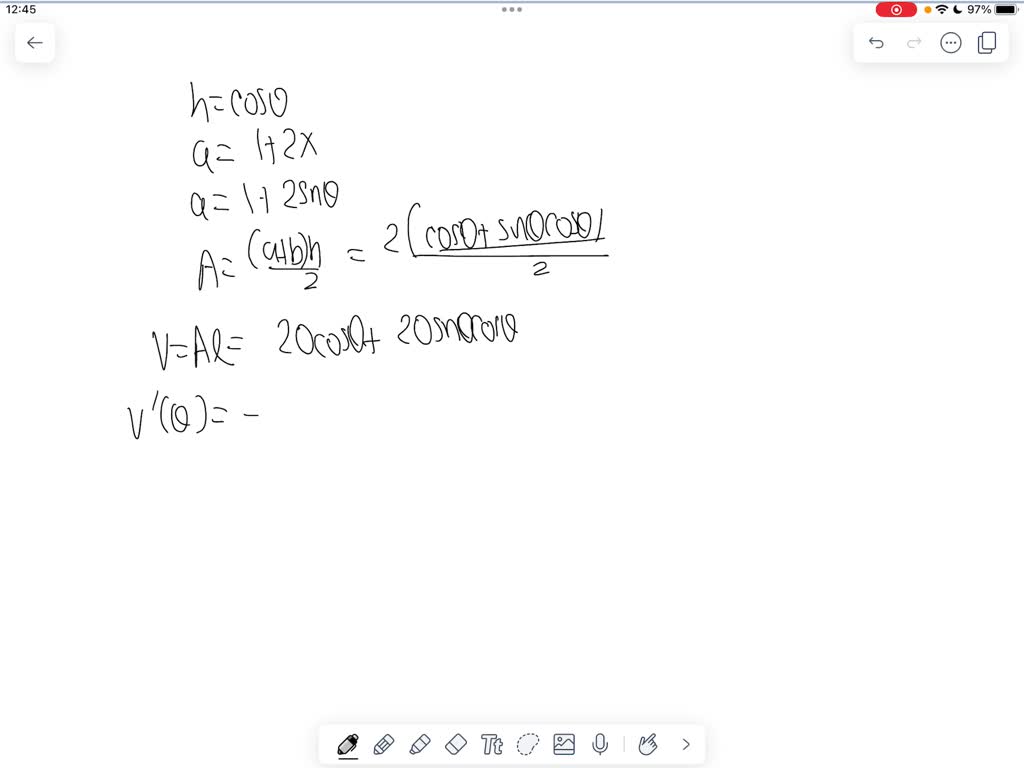 12:45
97%
h=cosθ
a= 1+2x
a= 1+ 2sinθ
A= (a+b)h/2 = 2(cosθ+ sinθcosθ)/2
V=Al= 20cosθ+ 20sinθcosθ
V'(θ)= -
Tt